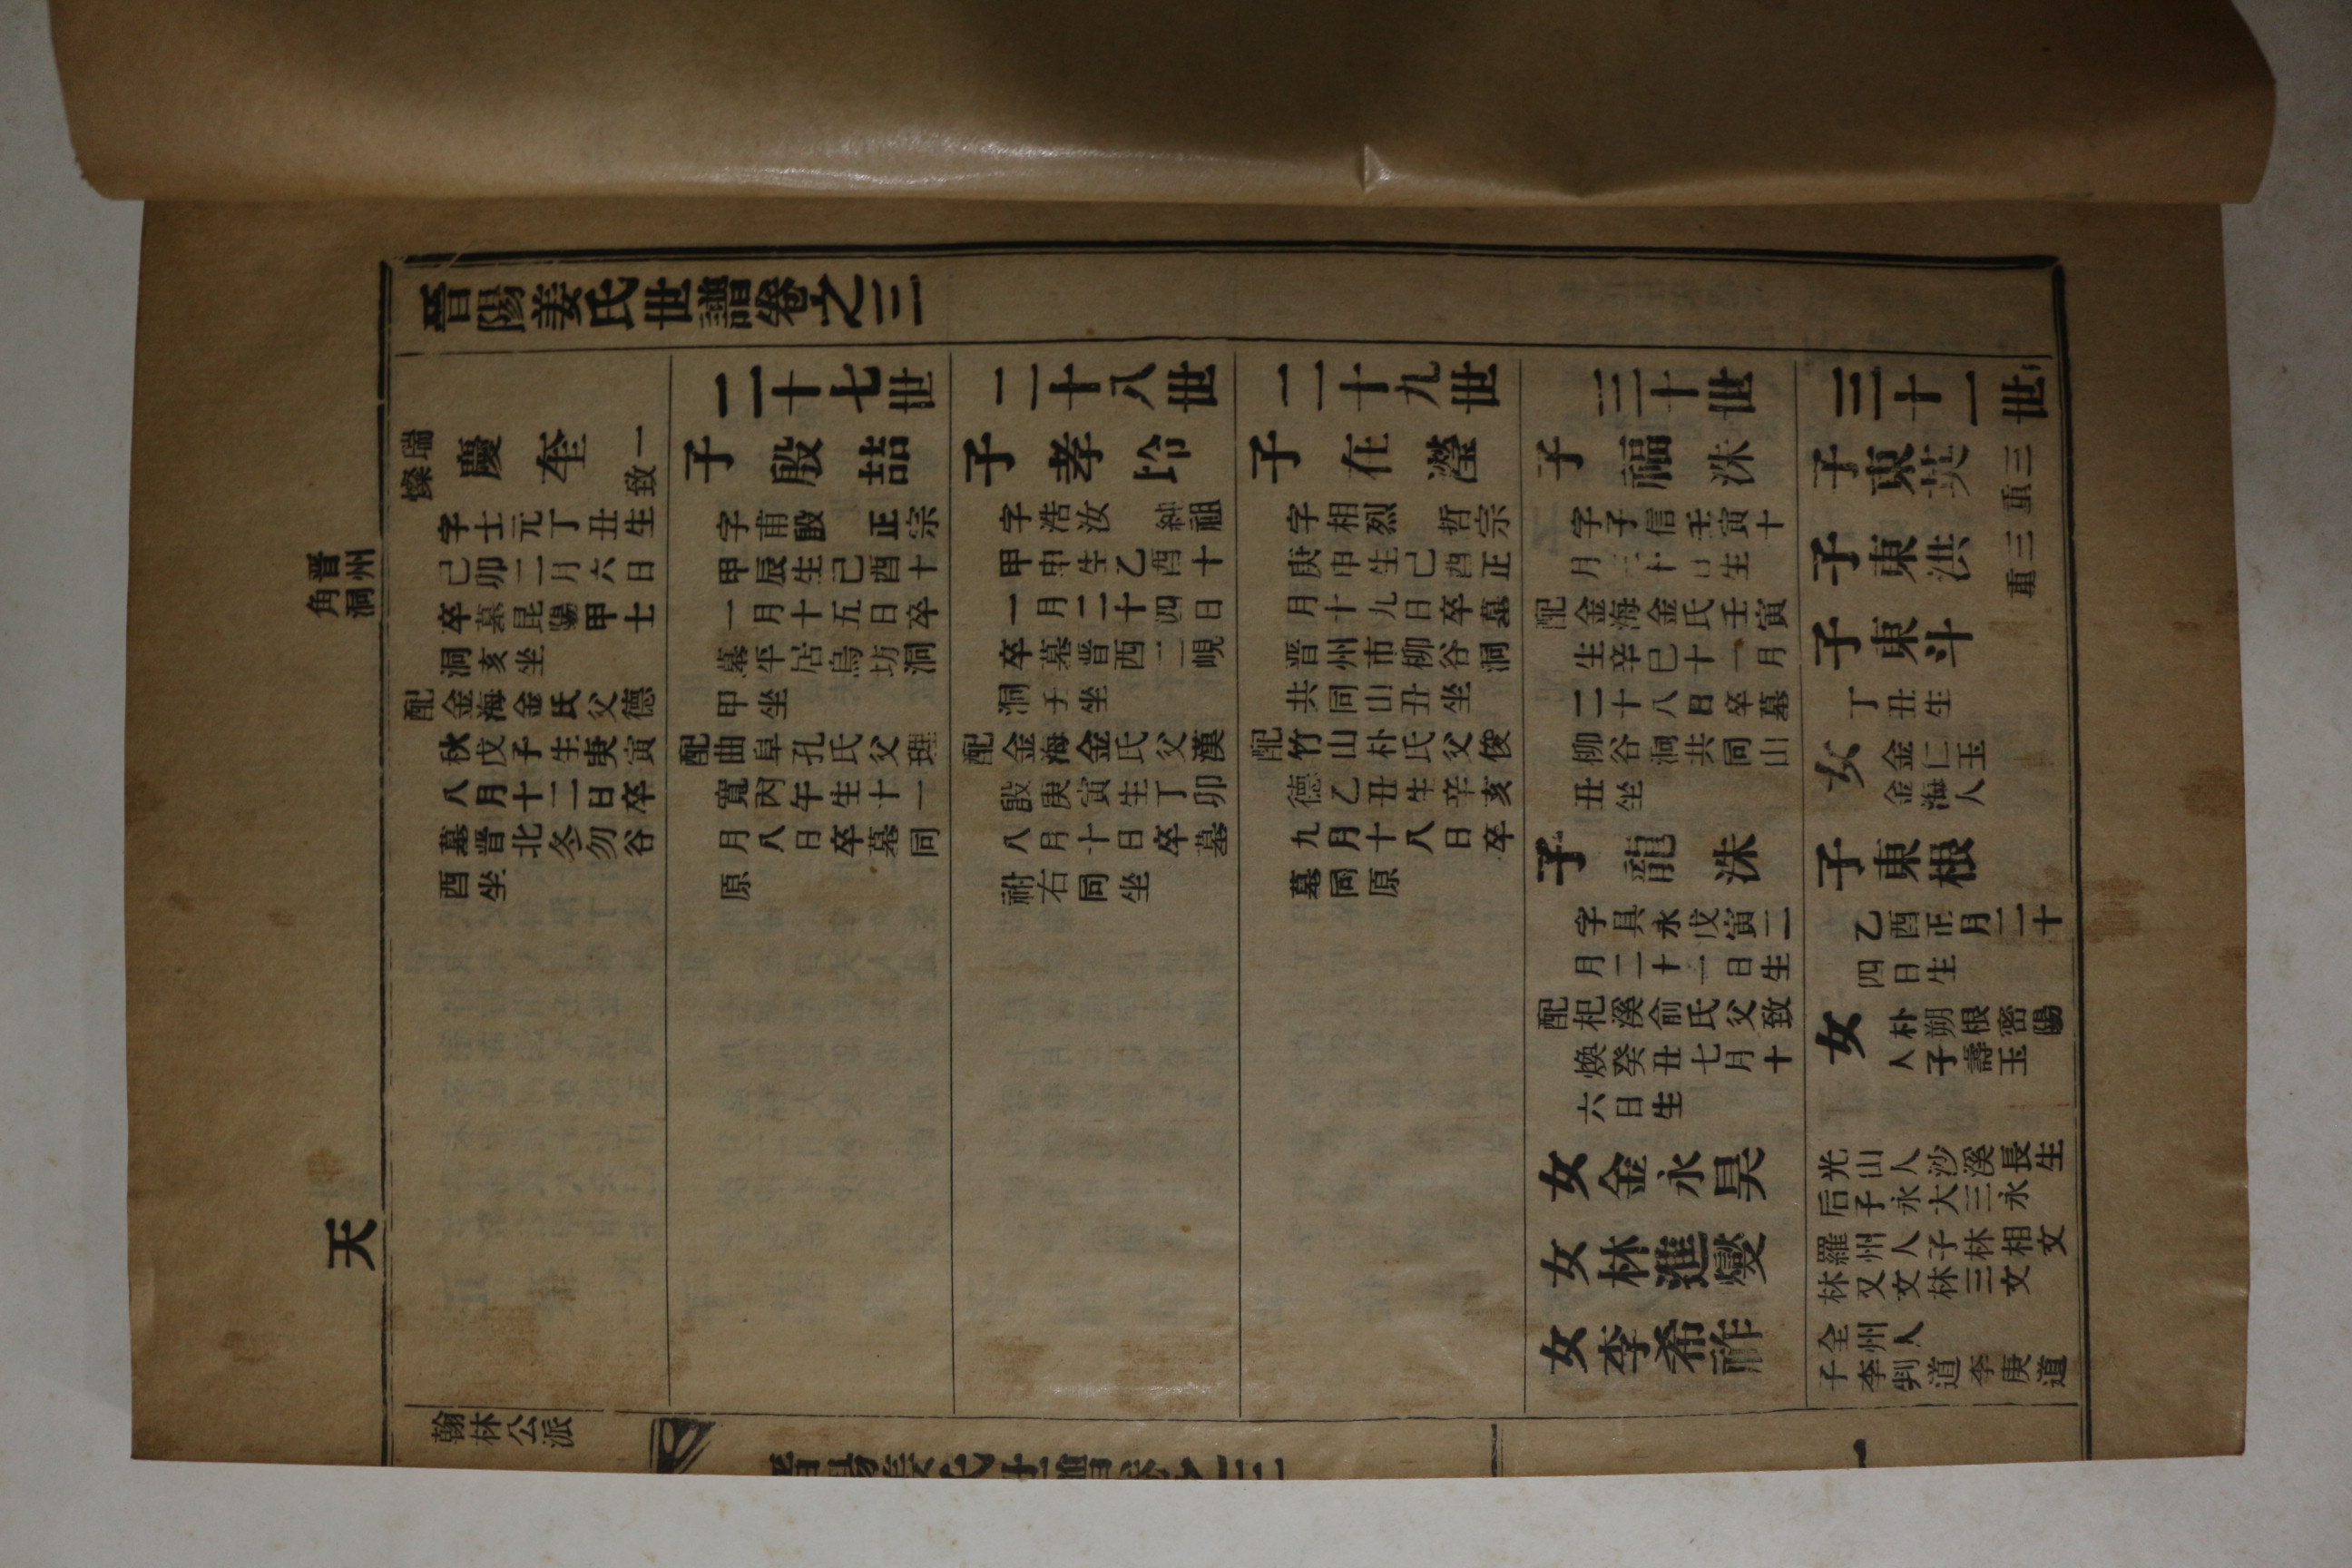 晉陽姜氏世譜卷之三
瑞燦 慶奎 一致
字士元丁丑生
己卯二月六日
卒墓昆陽甲士
洞亥坐
配金海金氏父德
秋戊子生庚寅
八月十二日卒
墓晋北冬勿谷
酉坐
二十七世
子殷喆
字甫殷 正宗
甲辰生己酉十
一月十五日卒
墓平居烏坊洞
甲坐
配曲阜孔氏父理
寬丙午生十一
月八日卒墓同
原
二十八世
子孝坽
字浩汝 純祖
甲申生乙酉十
一月二十四日
卒墓晋西二峴
洞子坐
配金海金氏父漢
殷庚寅生丁卯
八月十日卒墓
祔右同坐
二十九世
子在瀅
字相烈 哲宗
庚申生己酉正
月十九日卒墓
晋州市柳谷洞
共同山丑坐
配竹山朴氏父俊
德乙丑生辛亥
九月十八日卒
墓同原
三十世
子福洙
字子信壬寅十
月三十日生
配金海金氏壬寅
生辛巳十一月
二十八日卒墓
柳谷洞共同山
丑坐
子龍洙
字具永戊寅二
月二十一日生
配杞溪俞氏父致
煥癸丑七月十
六日生
女金永昊
女林進燮
女李希祚
三十一世
子東英 重三
子東洪 重三
子東斗
丁丑生
女金仁玉
金海人
子東根
乙酉正月二十
四日生
女朴朔根密陽
人子壽玉
光山人沙溪長生
后子永大三永
羅州人子林相文
林又文林三文
全州人
子李判道 李庚道
晋州
角洞
天
翰林公派
晉陽姜氏世譜卷之三
一